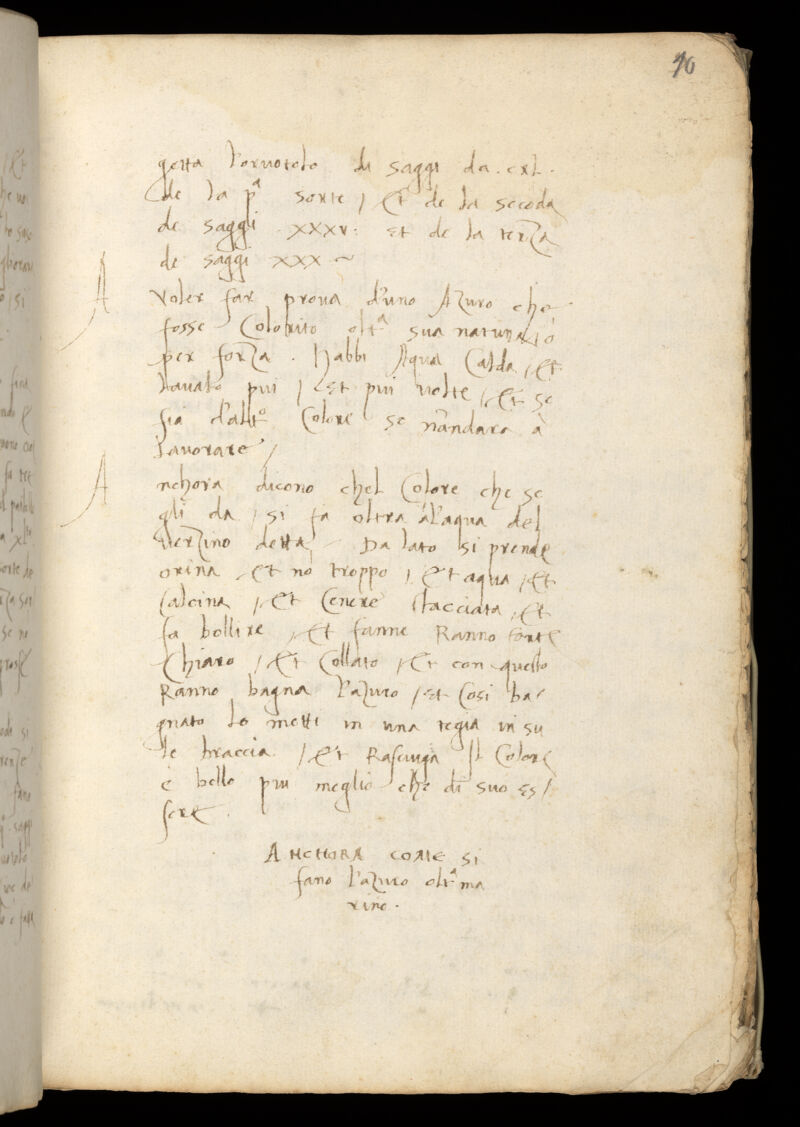 10
getta l'oruotolo di saggi da . cxl .
de la pª sorte / Et de la secoda
de saggi . xxxv : Et de la terza
de saggi xxx ~
A Voler far proua d'uno Azuro che
fosse Colorito oltª sua natura, ò
per forza . Habbi Aqua Calda, Et
lauato pui / Et pui uolte / Et se
fia d'altº Colore se n'andara à
lauorare /
A nchora dicono chel Colore che se
gli da / si fa oltra à l'aqua del
Verzino detta – Da lato si prende
orina, Et nõ troppo / Et aqua, Et
Calcina / Et Cenere stacciata, Et
fa bollire / Et fanne Ranno forte
Chiaro / Et Collato / Et con quello
Ranno bagna l'azuro / Et Cosi ba-
gnato lo metti in una tegia in su
le braccia / Et Rasciuga Il Colore
è bello piu meglio che di suo es/
sere .
ANCHORA COME SI
fano l'azuro oltªma
rino .